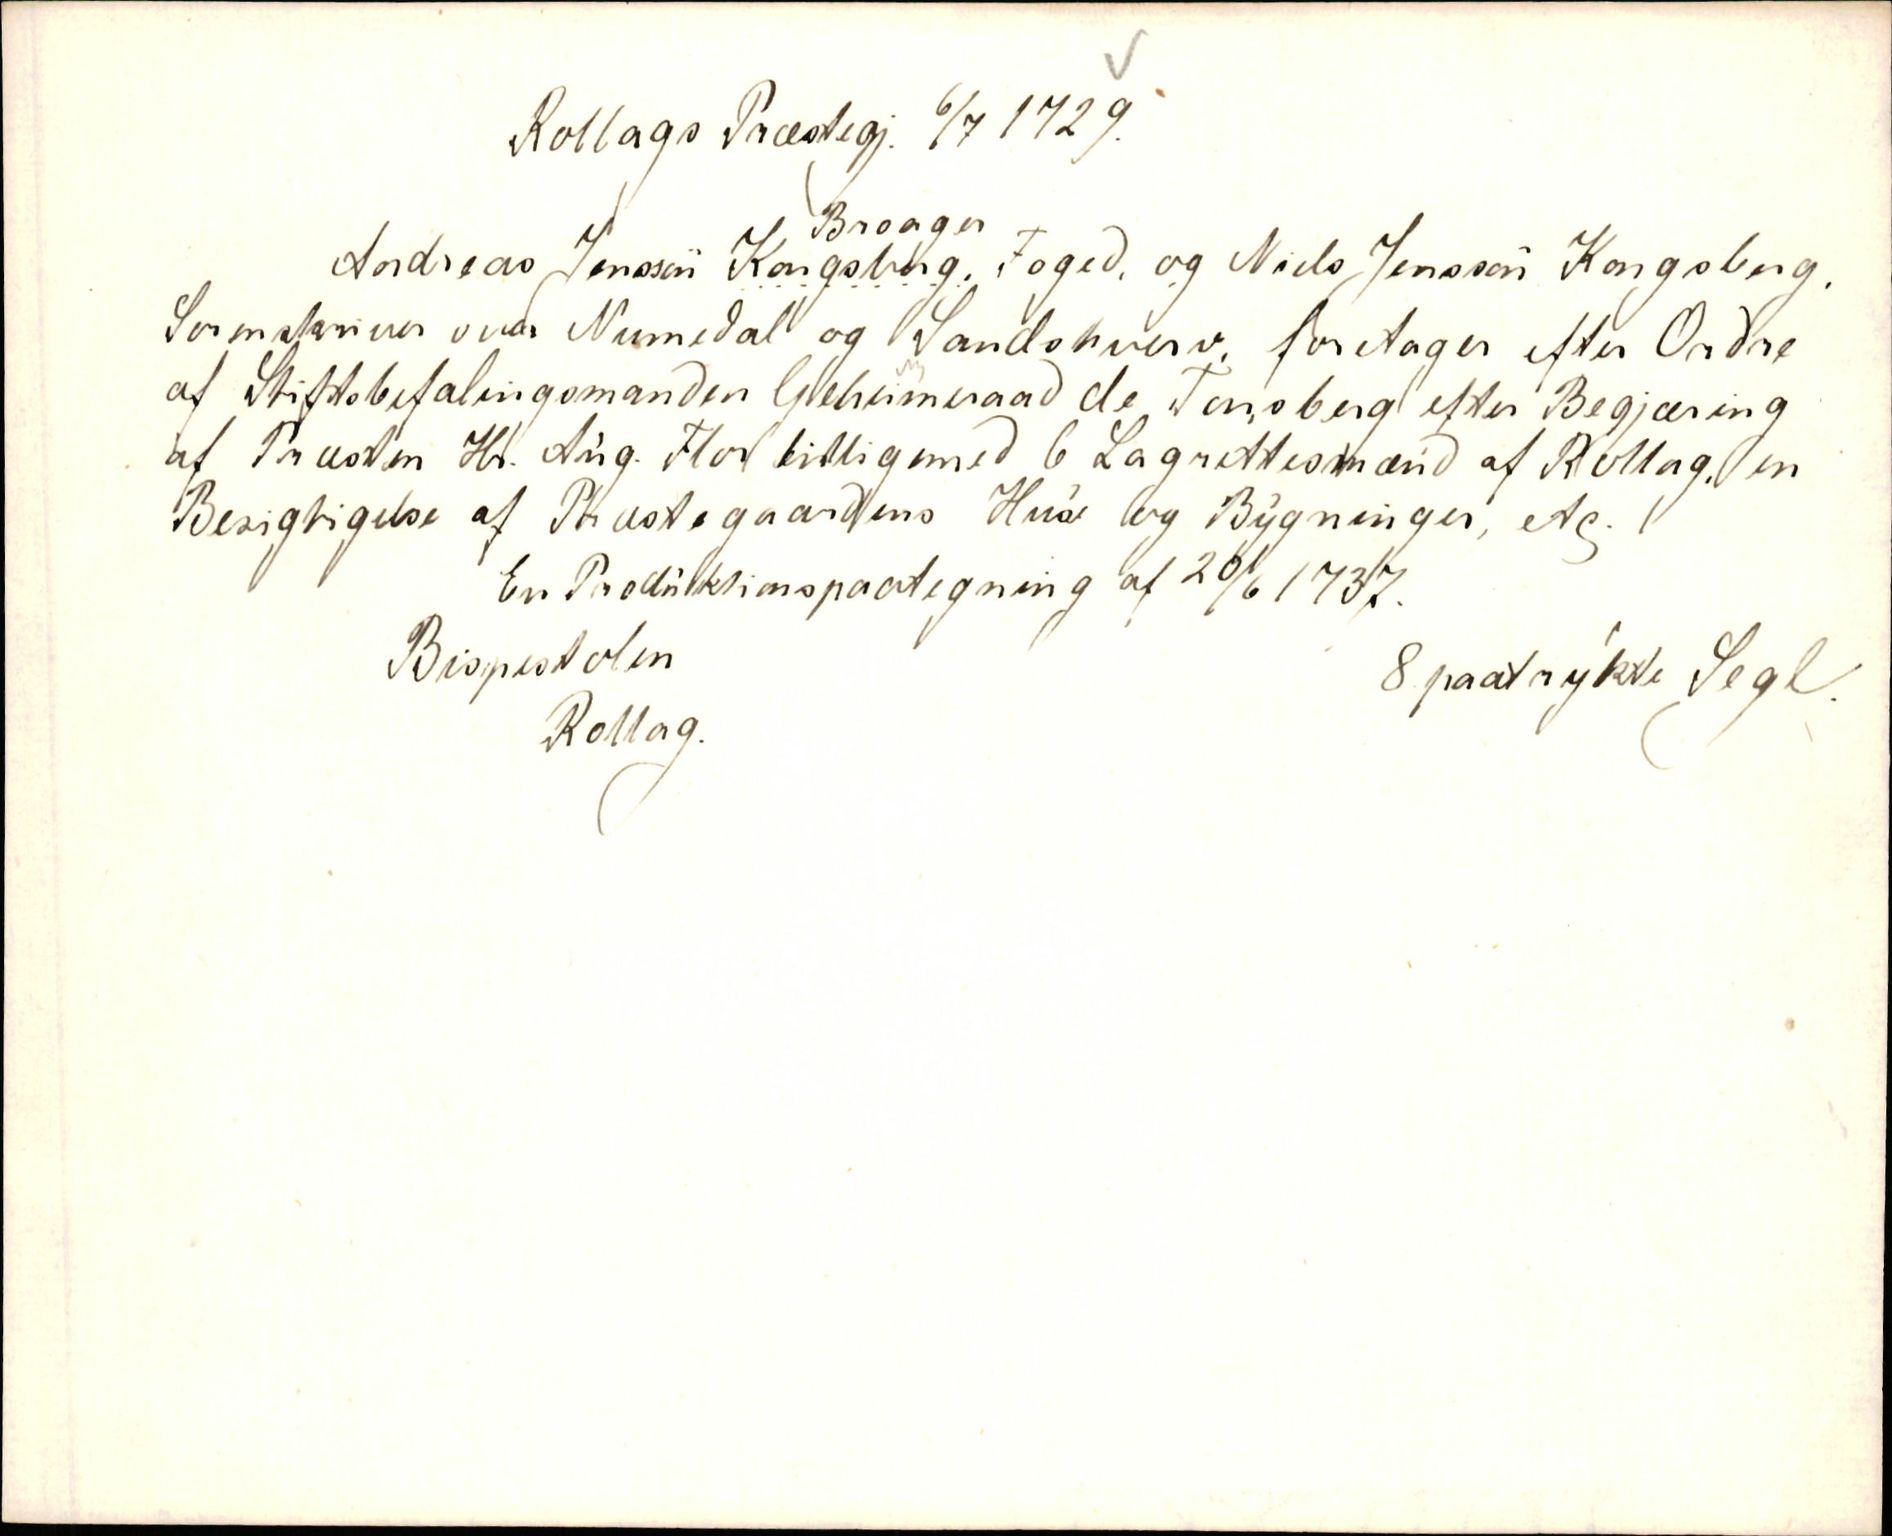 Rollags Præstegj. 6/7 1729.
Broager
Andreas Jenssøn Kongsberg, Foged, og Niels Jenssøn Kongsberg,
Sorenskriver over Numedal og Sandshverv, foretager efter Ordre
af Stiftsbefalingsmanden Geheimeraad de Tonsberg efter Begjæring
af Præsten Hr. Aug. Flor tilligemed 6 Lagrettesmænd af Rollag, en
Besigtigelse af Præstegaardens Huse og Bygninger, etc.
En Produktionspaategning af 20/6 1737.
Bispestolen
8 paatrykte Segl.
Rollag.